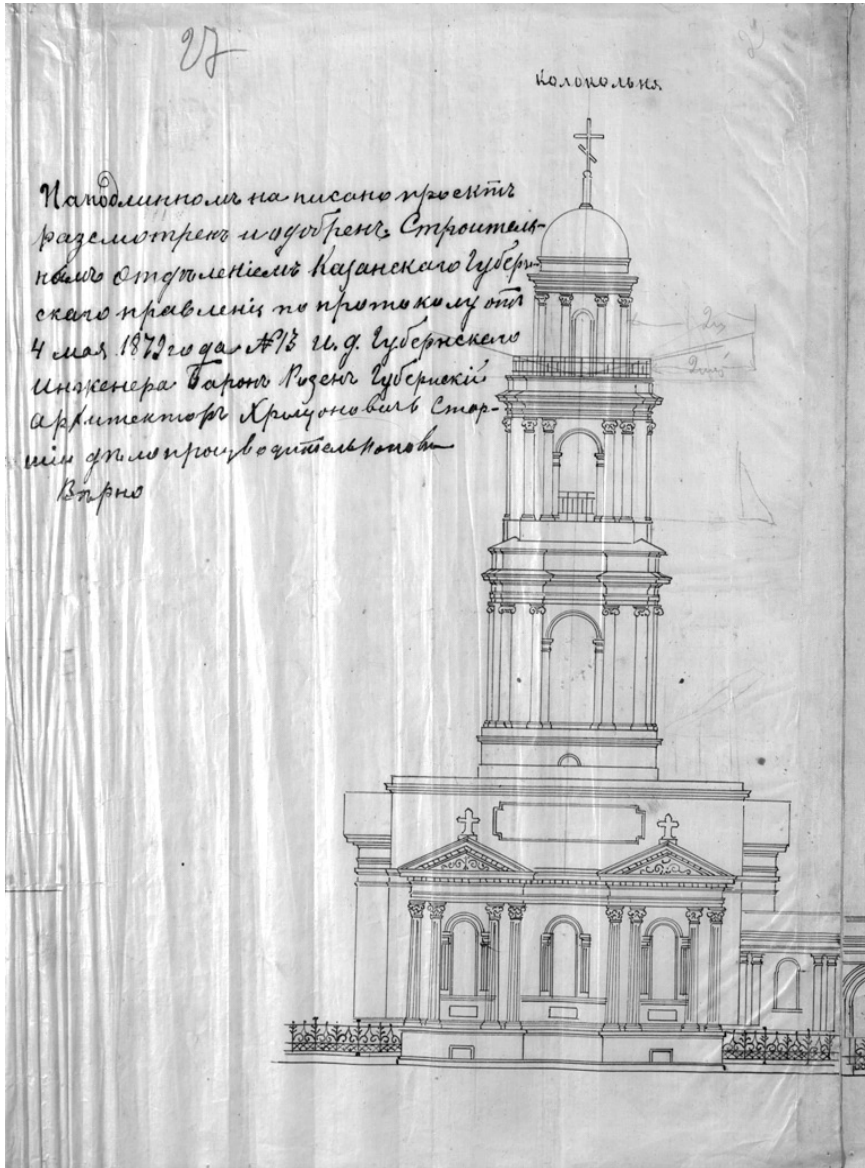 27
2
колокольня
На подлинномъ написано проектъ
разсмотренъ и одобренъ Строитель-
нымъ Отделенiемъ Казанскаго Губерн-
скаго правленiя по протоколу отъ
4 мая 1872 года №13 И. д. Губернскаго
Инженера Баронъ Розенъ Губернскiй
архитекторъ Хрщоновичъ Стар-
шiй дѣлопроизводитель Попов
Вѣрно